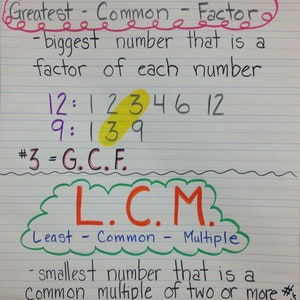 Greatest - Common - Factor
-biggest number that is a
factor of each number
12: 1 2 3 4 6 12
9: 1 3 9
#3 = G.C.F.
L.C.M.
Least - Common - Multiple
-smallest number that is a
common multiple of two or more #s